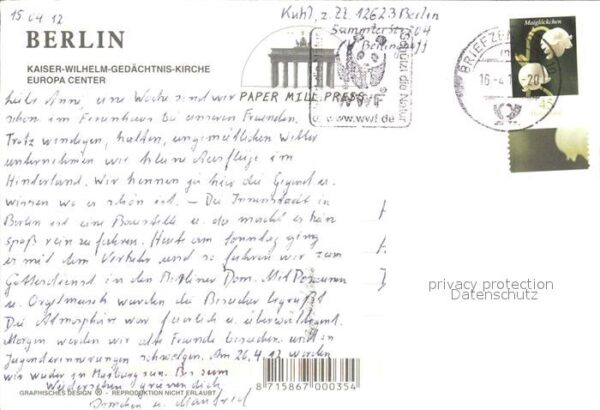 15.04.12
Kuhl, z. Zt. 12623 Berlin
Sammterstr. 204
BERLIN
KAISER-WILHELM-GEDÄCHTNIS-KIRCHE
EUROPA CENTER
PAPER MILL PRESS
WWF
Schützt die Natur
www.wwf.de
BRIEFZEN
16-4.1 -20
Maiglöckchen
45
Liebe Anne, eine Woche sind wir
schon im Ferienhaus bei unseren Freunden.
Trotz windigen, kalten, ungemütlichen Wetter
unternehmen wir kleine Ausflüge im
Hinderland. Wir kennen ja hier die Gegend u.
wissen wo es schön ist. – Die Innenstadt in
Berlin ist eine Baustelle u. da macht es kein
spaß rein zu fahren. Heute am Sonntag ging
es mit dem Verkehr und so fuhren wir zum
Gottesdienst in den Berliner Dom. Mit Posaunen
u. Orgelmusik wurden die Besucher begrüßt
Die Atmosphäre war feierlich u. überwältigend.
Morgen werden wir alte Freunde besuchen und in
Jugenderinnerungen schwelgen. Am 26.4.12 werden
wir wieder in Marburg sein. Bis zum
Wiedersehen grüßen dich
u. Manfred
privacy protection
Datenschutz
8 715867 000354
GRAPHISCHES DESIGN ® - REPRODUKTION NICHT ERLAUBT